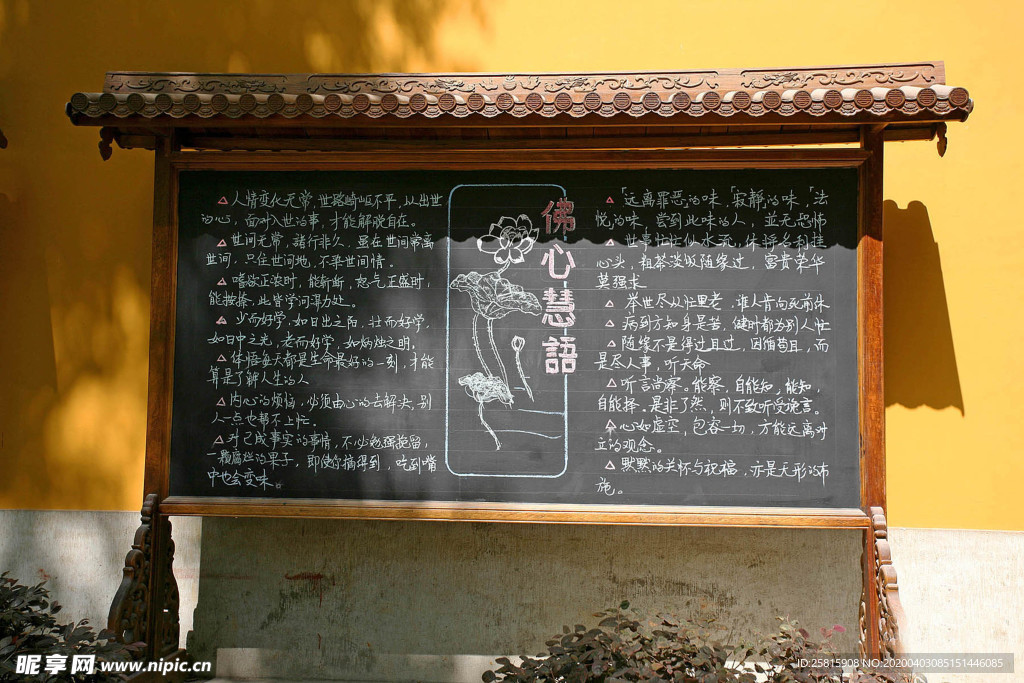 △人情变化无常,世路崎岖不平,从出世
的心,面对入世的事,才能解脱自在。
△世间无常,諸行非久,虽在世间常离
世间,只住世间地,不染世间情。
△嗜欲正浓时,能斩断,怒气正盛时,
能按捺,此皆学问得力处。
△少而好学,如日出之阳,壮而好学,
如日中之光,老而好学,如炳烛之明。
△体悟每天都是生命最好的一刻,才能
算是了解人生的人
△内心的烦恼,必须由心的去解决,别
人一点也帮不上忙。
△对已成事实的事情,不必勉强挽留,
一颗腐烂的果子,即使你摘得到,吃到嘴
中也会变味。
佛心慧語
△「远离罪恶的味,「寂静的味,「法
悦的味,尝到此味的人,並无恐怖
△世事忙忙似水流,休将名利挂
心头,粗茶淡饭随缘过,富贵荣华
莫强求
△举世尽从忙里老,谁人肯向死前休
△病到方知身是苦,健时都为别人忙
△随缘不是得过且过,因循苟且,而
是尽人事,听天命
△听言尚察。能察,自能知,能知,
自能择。是非了然,则不致听受诡言。
△心如虚空,包容一切,方能远离对
立的观念。
△默默的关怀与祝福,亦是无形的布
施。
昵享网 www.nipic.cn
ID:25815908 NO:20200403085151446085